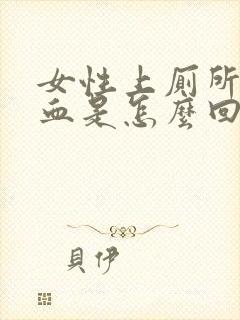 女性上厠所
血是怎麼回
貝伊